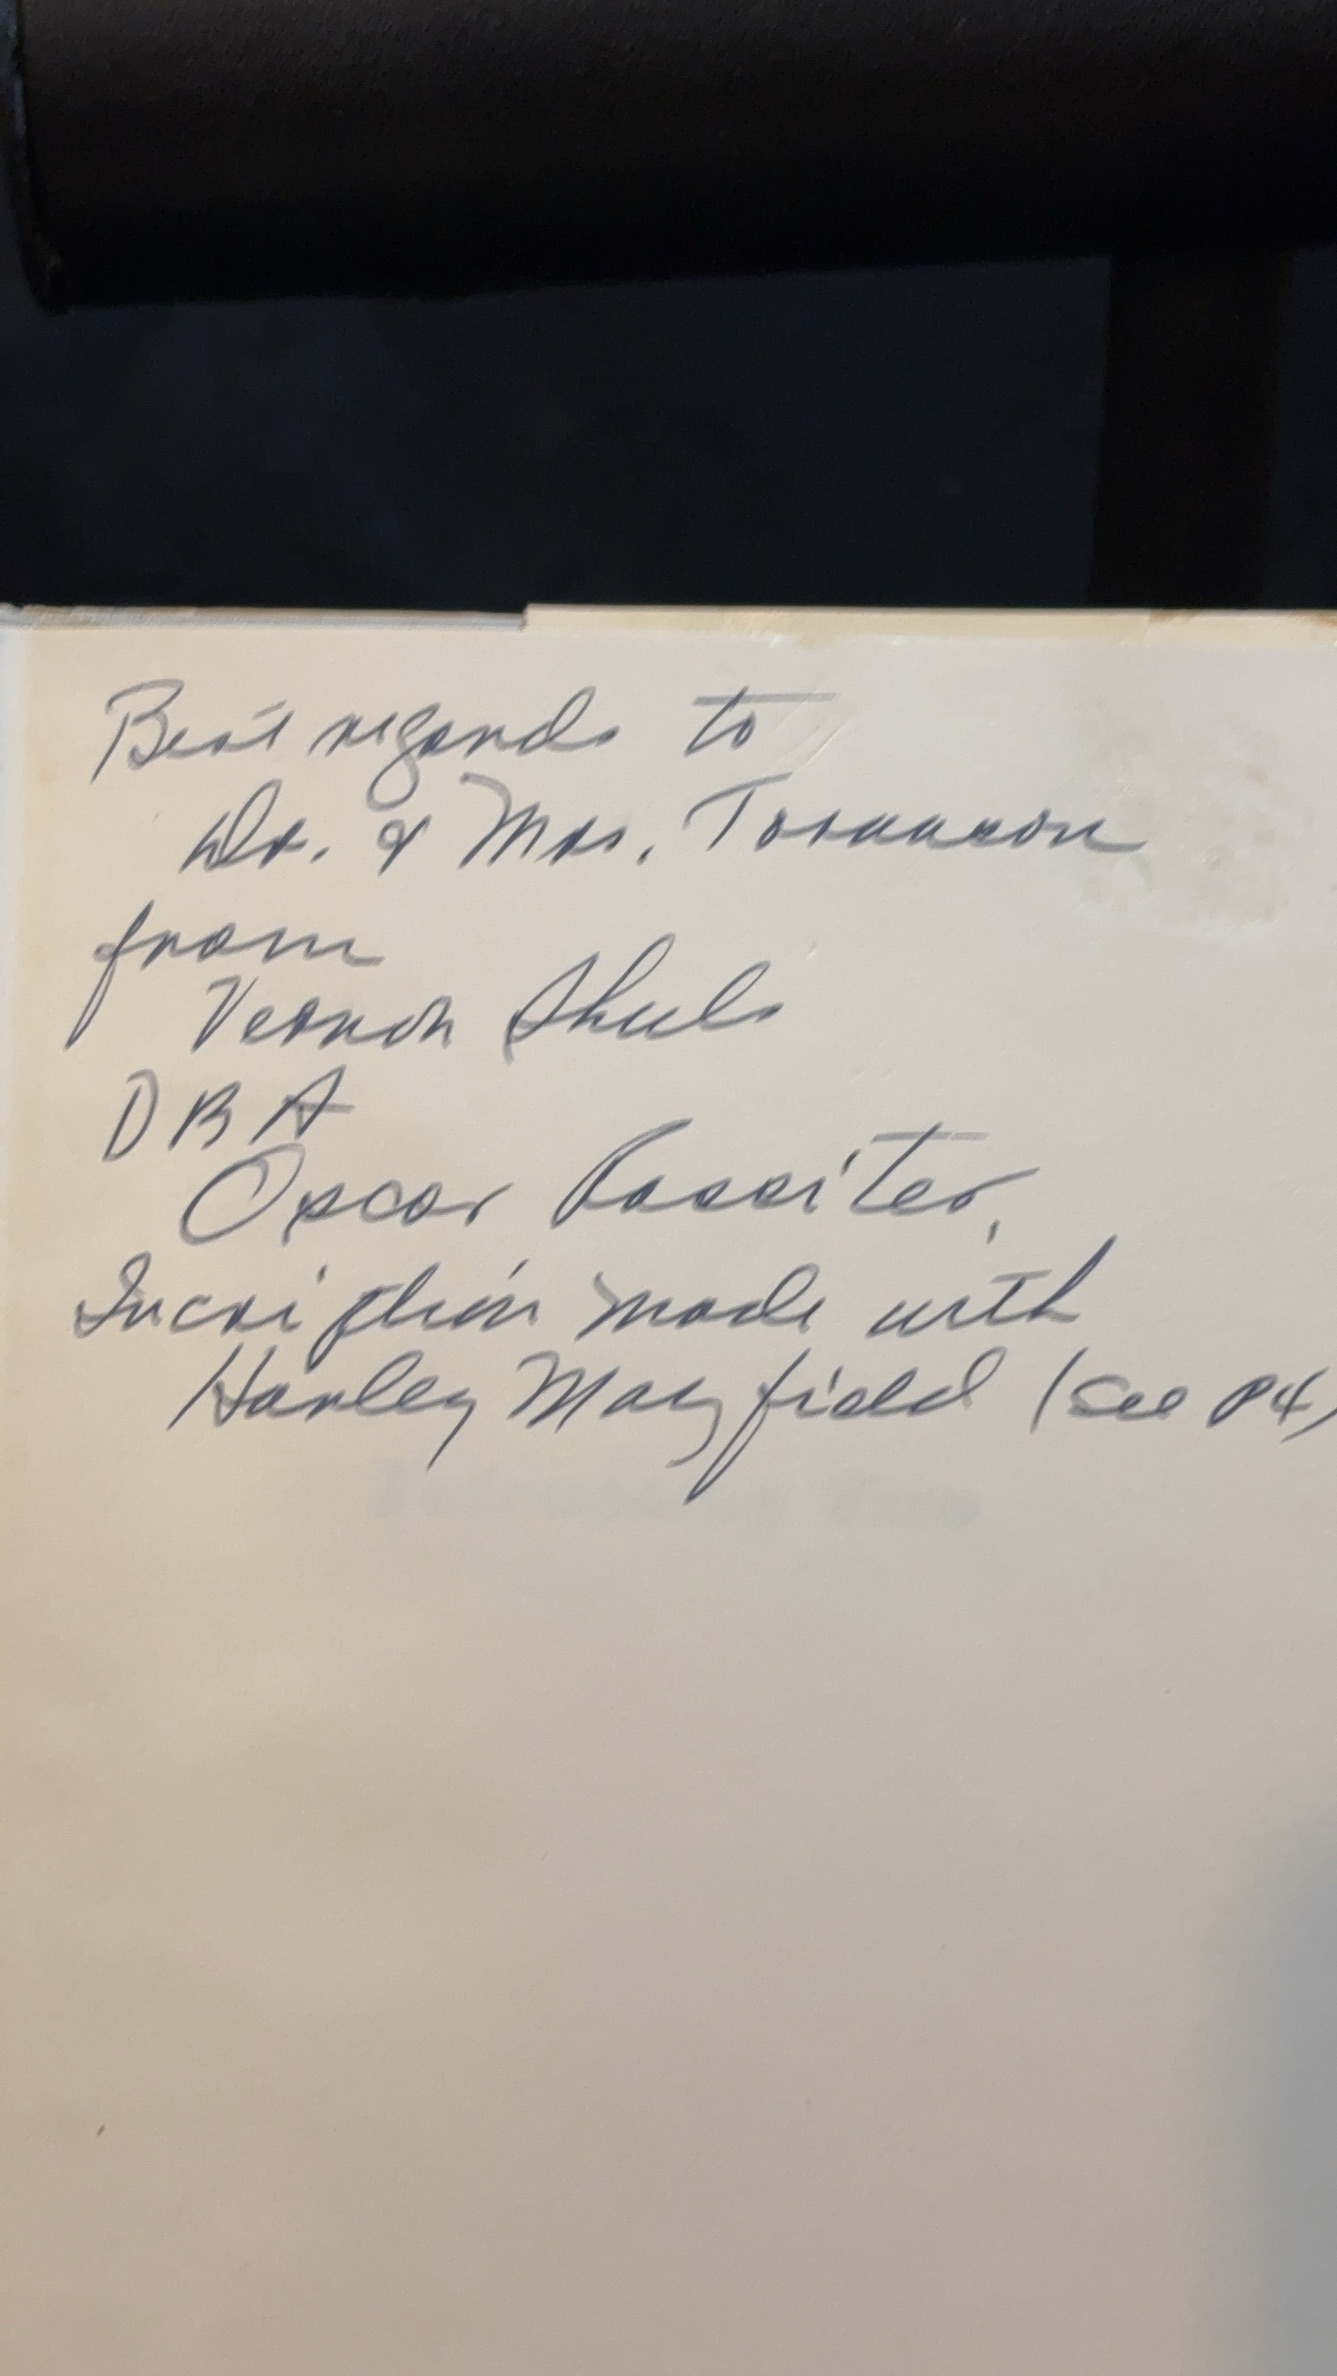 Best regards to
Dr. & Mrs.
from
Vernon
DBA
Oscar Rossiter,
Incription made with
Harley Mayfield (see P4)